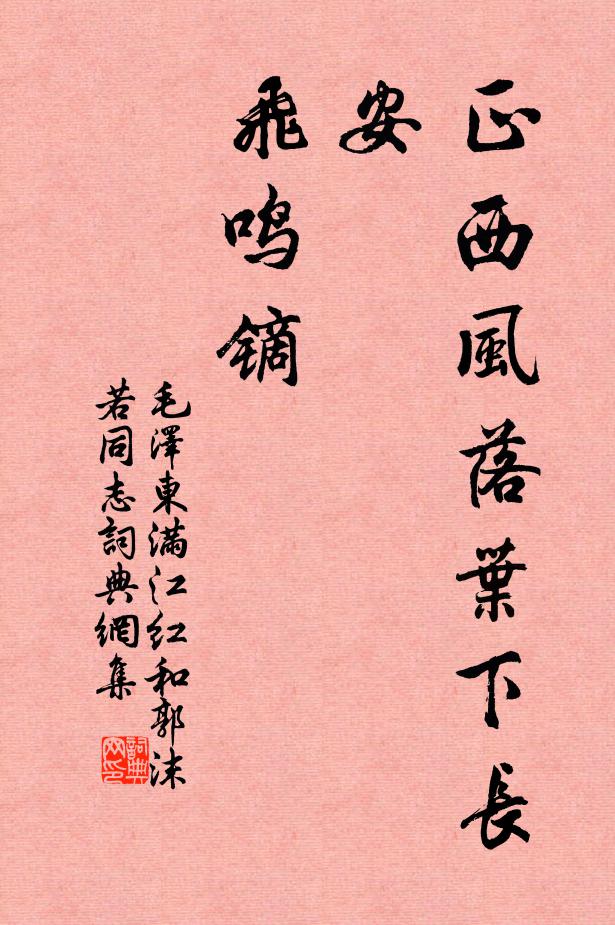 正西風落葉下長
安
飛鳴鏑
毛澤東滿江紅和郭沫
若同志詞典網集
詞典
网印